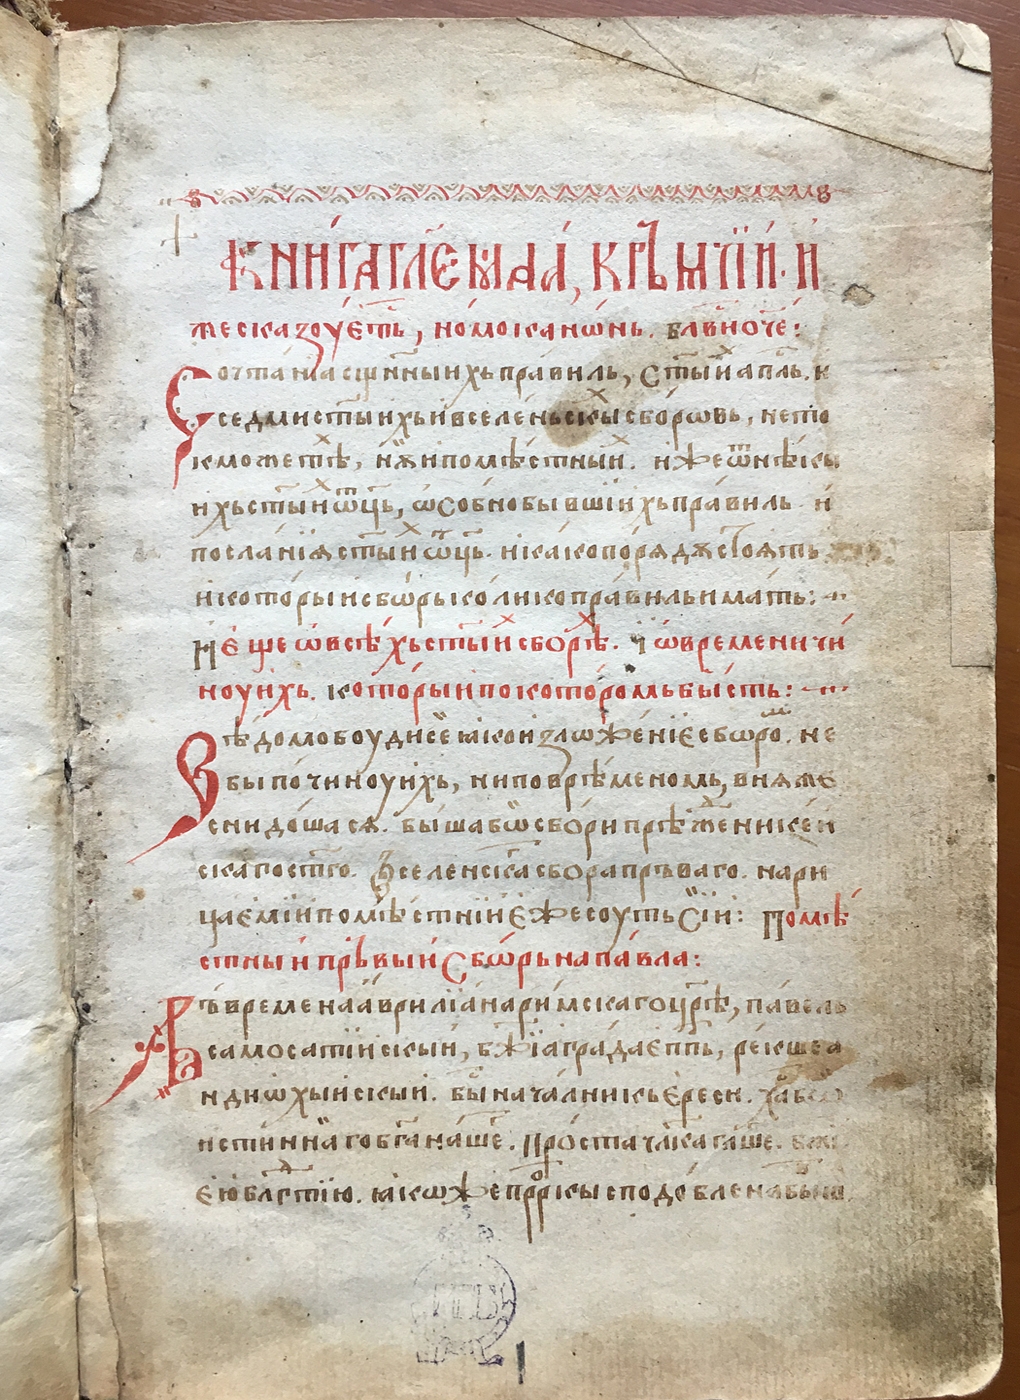 Кни́га гл҃емаа, кръмчїи. и
же сказꙋет, номоканѡ́нь. бл҃вноче:
Съчтанїа сщ҃нныихь пра́виль, ст҃ыи ап҃ль. и
седми ст҃ыихь и вселе́ньскы сборѡвь, не то
кмо же тѣ, нѫ и помѣ́стный. иже ѿ нѣ́кы
ихь ст҃ый ѡц҃ь, ѡсобно бы́вшїихь пра́виль. и
посланїѧ ст҃ый ѡц҃ь. и како по рѧдꙋ стоѧть
и кото́рыи сьбѡ́рь колико пра́виль и́мать:
И еще ѡ всѣ́хь ст҃ый сборѣ. ї ѡ времени чи́
ноу ихь. кото́рыи по которомь бы́сть:
Вѣ́домо боуди се ꙗко изложе́нїе сбѡро. не
бы по чи́ноу ихь, ни по врѣ́меномь, в нѧже
снидо́ша сѧ. бы́ша бо сбори прѣ́же никей
скаго ст҃го. вселенска сбора пръваго. нари
цаемїи помѣ́стнїи е́же соуть сїи: Помѣ́
стныи прь́выи сбѡ́рь на па́вла:
Въ времена аврилїа́на римскаго цр҃ѣ, па́вель
самосатїискыи, бж҃їа гра́да еп҃пь, ре́кше а
нтиѡхыискыи. бы нача́лникь е́реси. ха бо
истиннаго бг҃а на́ше. про́ста чл҃ка гл҃аше.
ею бл҃гтїю. ꙗкоже прр҃кы сподоблена бы́вш